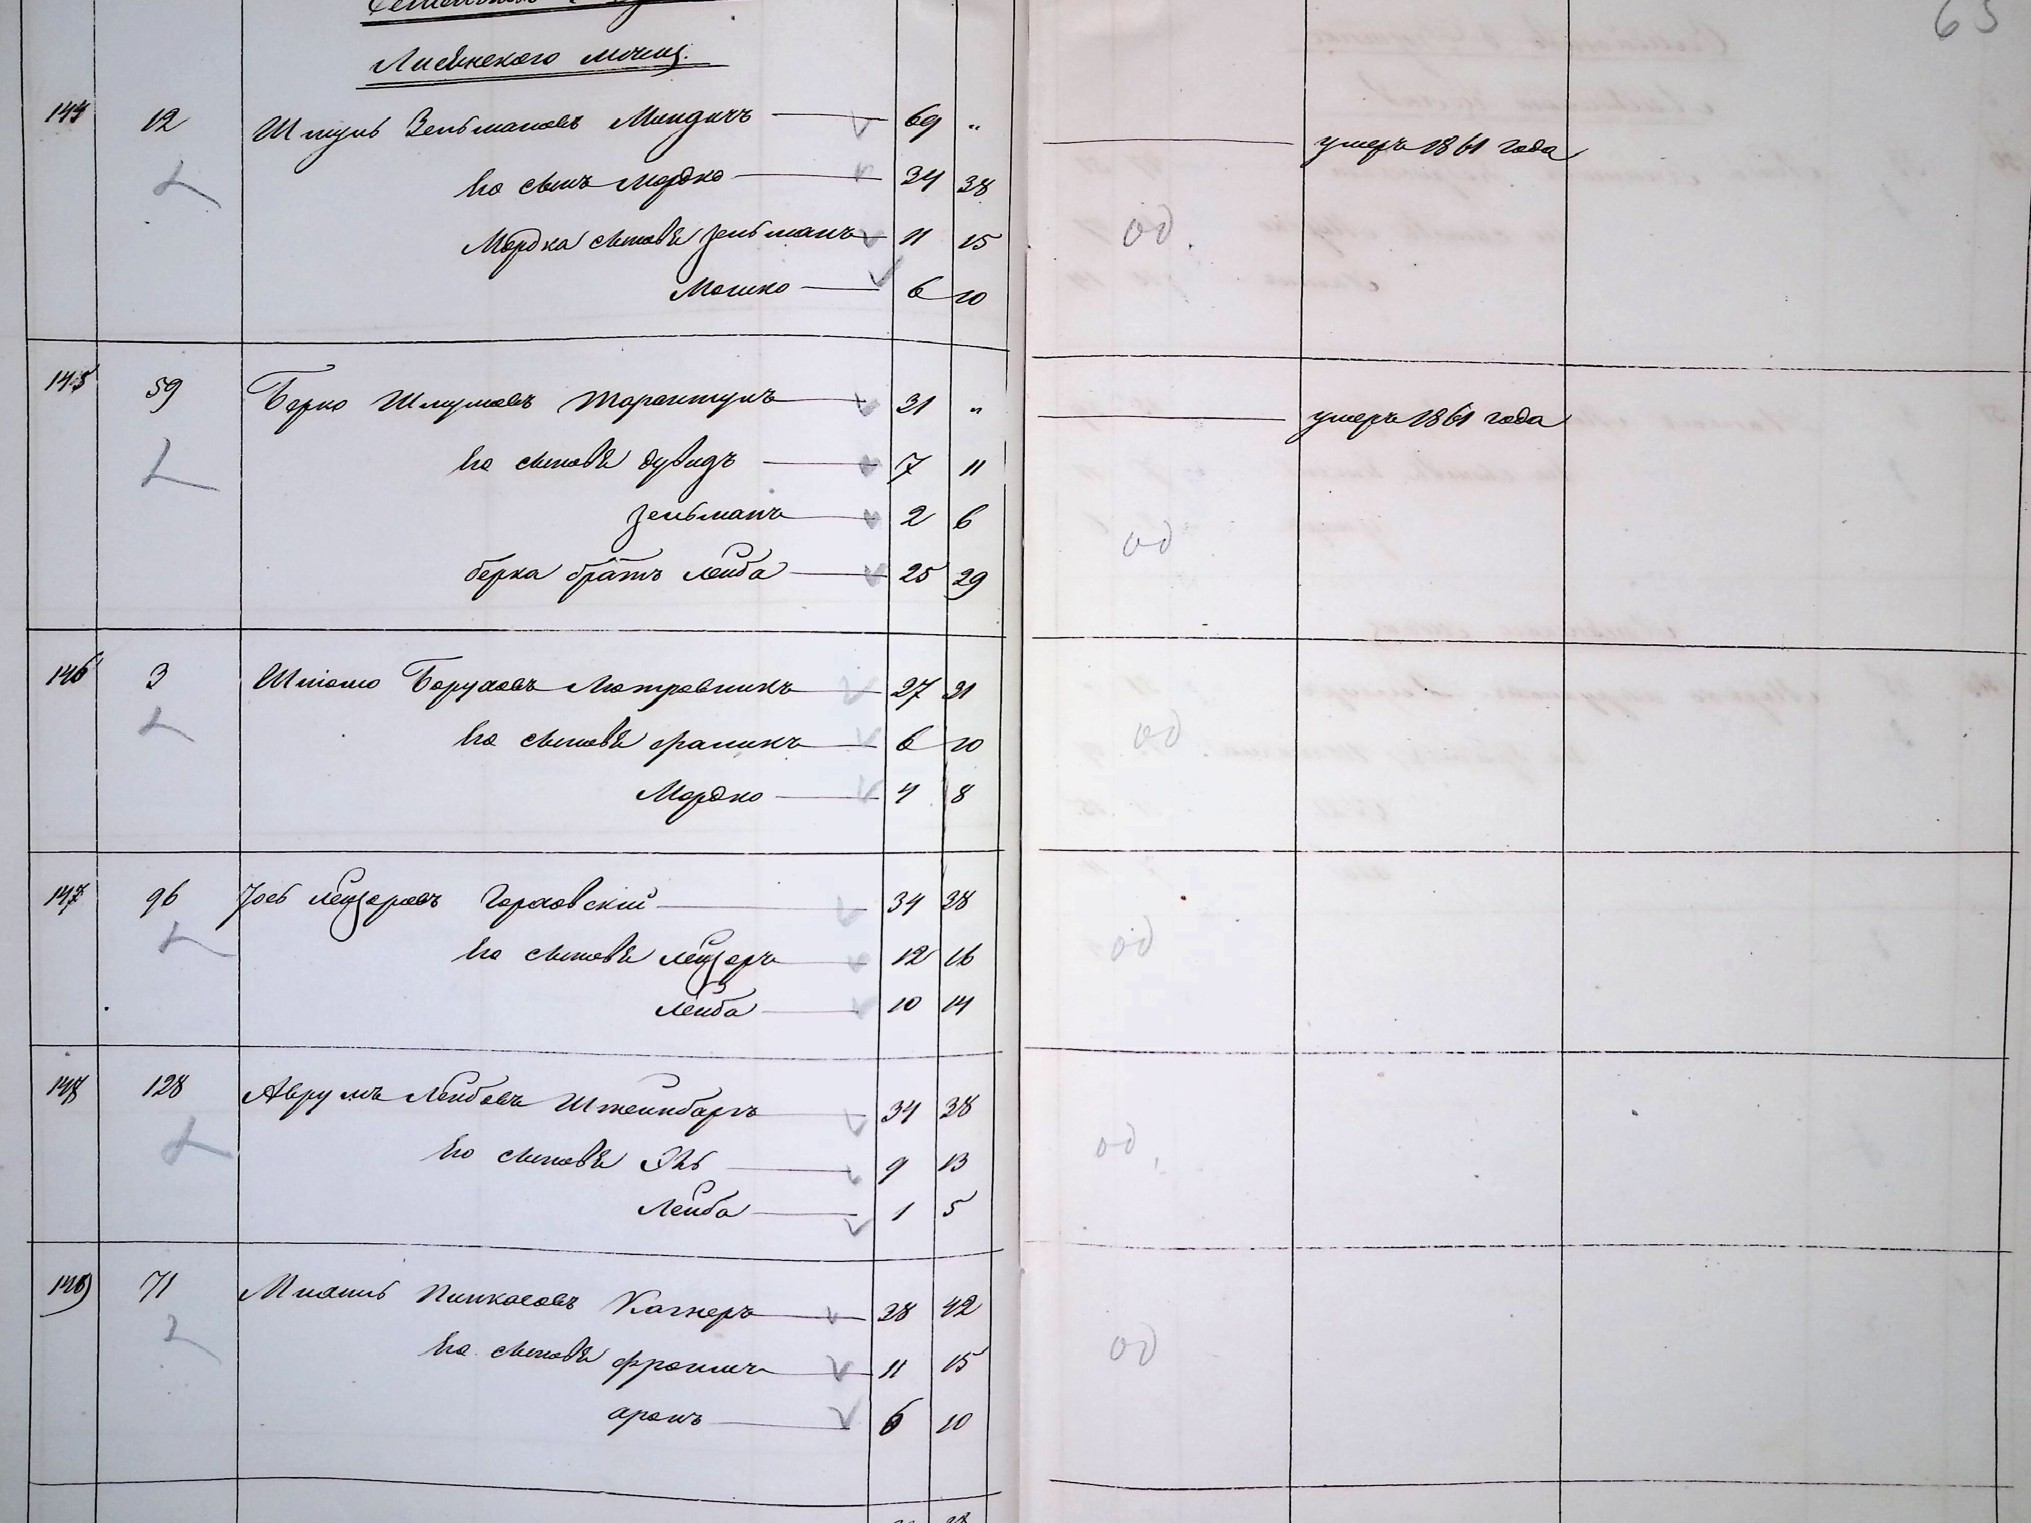 65
Лисянского мѣщ.
144 12 Шмуль Зельмановъ Миндичъ 69 " умеръ 1861 года
Его сынъ Мордко 34 38
Мордка сыновья Зельманъ 11 15 од.
Мошко 6 10
145 59 Берко Шмулевъ Тарантулъ 31 " умеръ 1861 года
Его сыновья Дувидъ 7 11
Зельманъ 2 6 од
берка братъ Лейба 25 29
146 3 Шлiомо Боруховъ 27 31
Его сыновья 6 10 од
Мордко 4 8
147 96 Лейзоровъ Гораховскiй 34 38
Его сыновья Лейзоръ 12 16 од
Лейба 10 14
148 128 Аврумъ Лейбовъ Штейнбаргъ 34 38
Его сыновья 9 13 од
Лейба 1 5
149 71 Пинкасовъ Кагнеръ 38 42
Его сыновья Фроимъ 11 15 од
аронъ 6 10